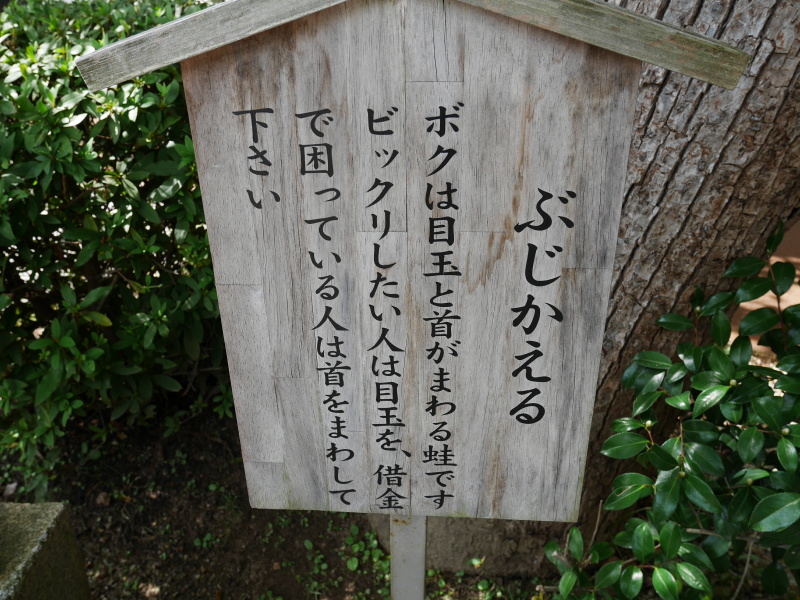 ぶじかえる
ボクは目玉と首がまわる蛙です
ビックリしたい人は目玉を、借金
で困っている人は首をまわして
下さい